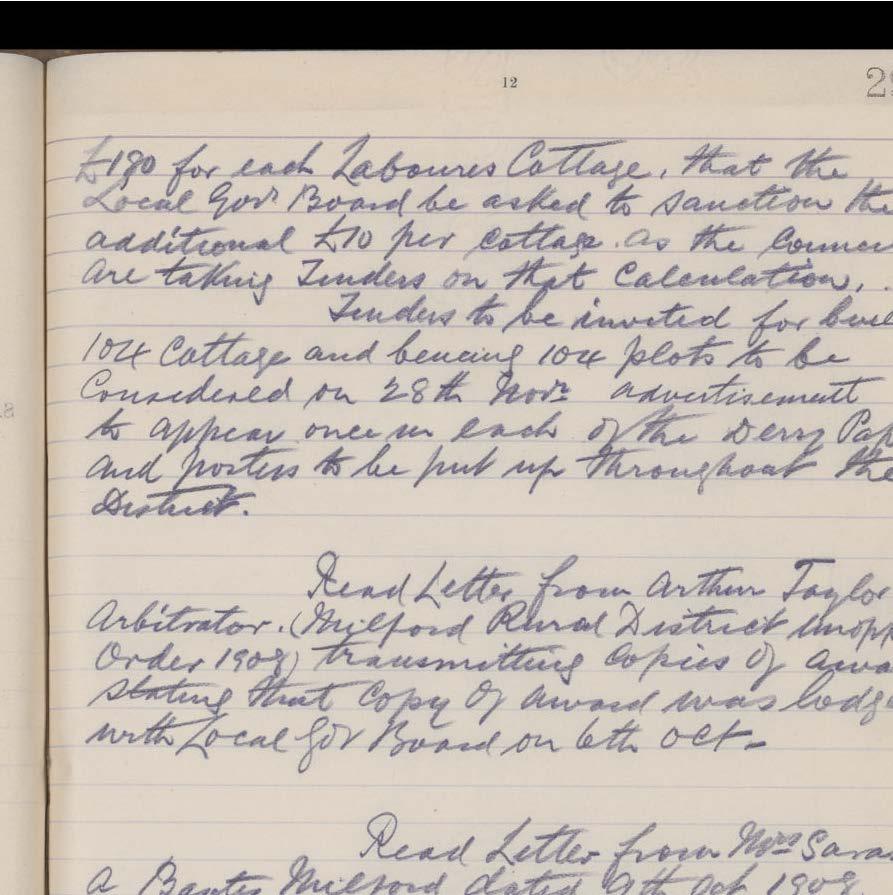 12
£180 for each Laboures Cottage, that the
Local Govt Board be asked to sanction the
additional £10 per cottage as the Counci
are taking Tenders on that Calculation.
Tenders to be invited for buil
104 Cottage and fencing 104 plots to be
Considered on 28th Novr advertisement
to appear once in each of the Derry Pap
and posters to be put up throughout the
District.
Read Letter from Arthur Taylor
Arbitrator. (Milford Rural District Unopp
Order 1908) transmitting Copies of awa
stating that Copy of award was lodge
with Local Gov Board on 6th Oct-
Read Letter from Mrs Sara
a Milford dated 9th Oct 1908